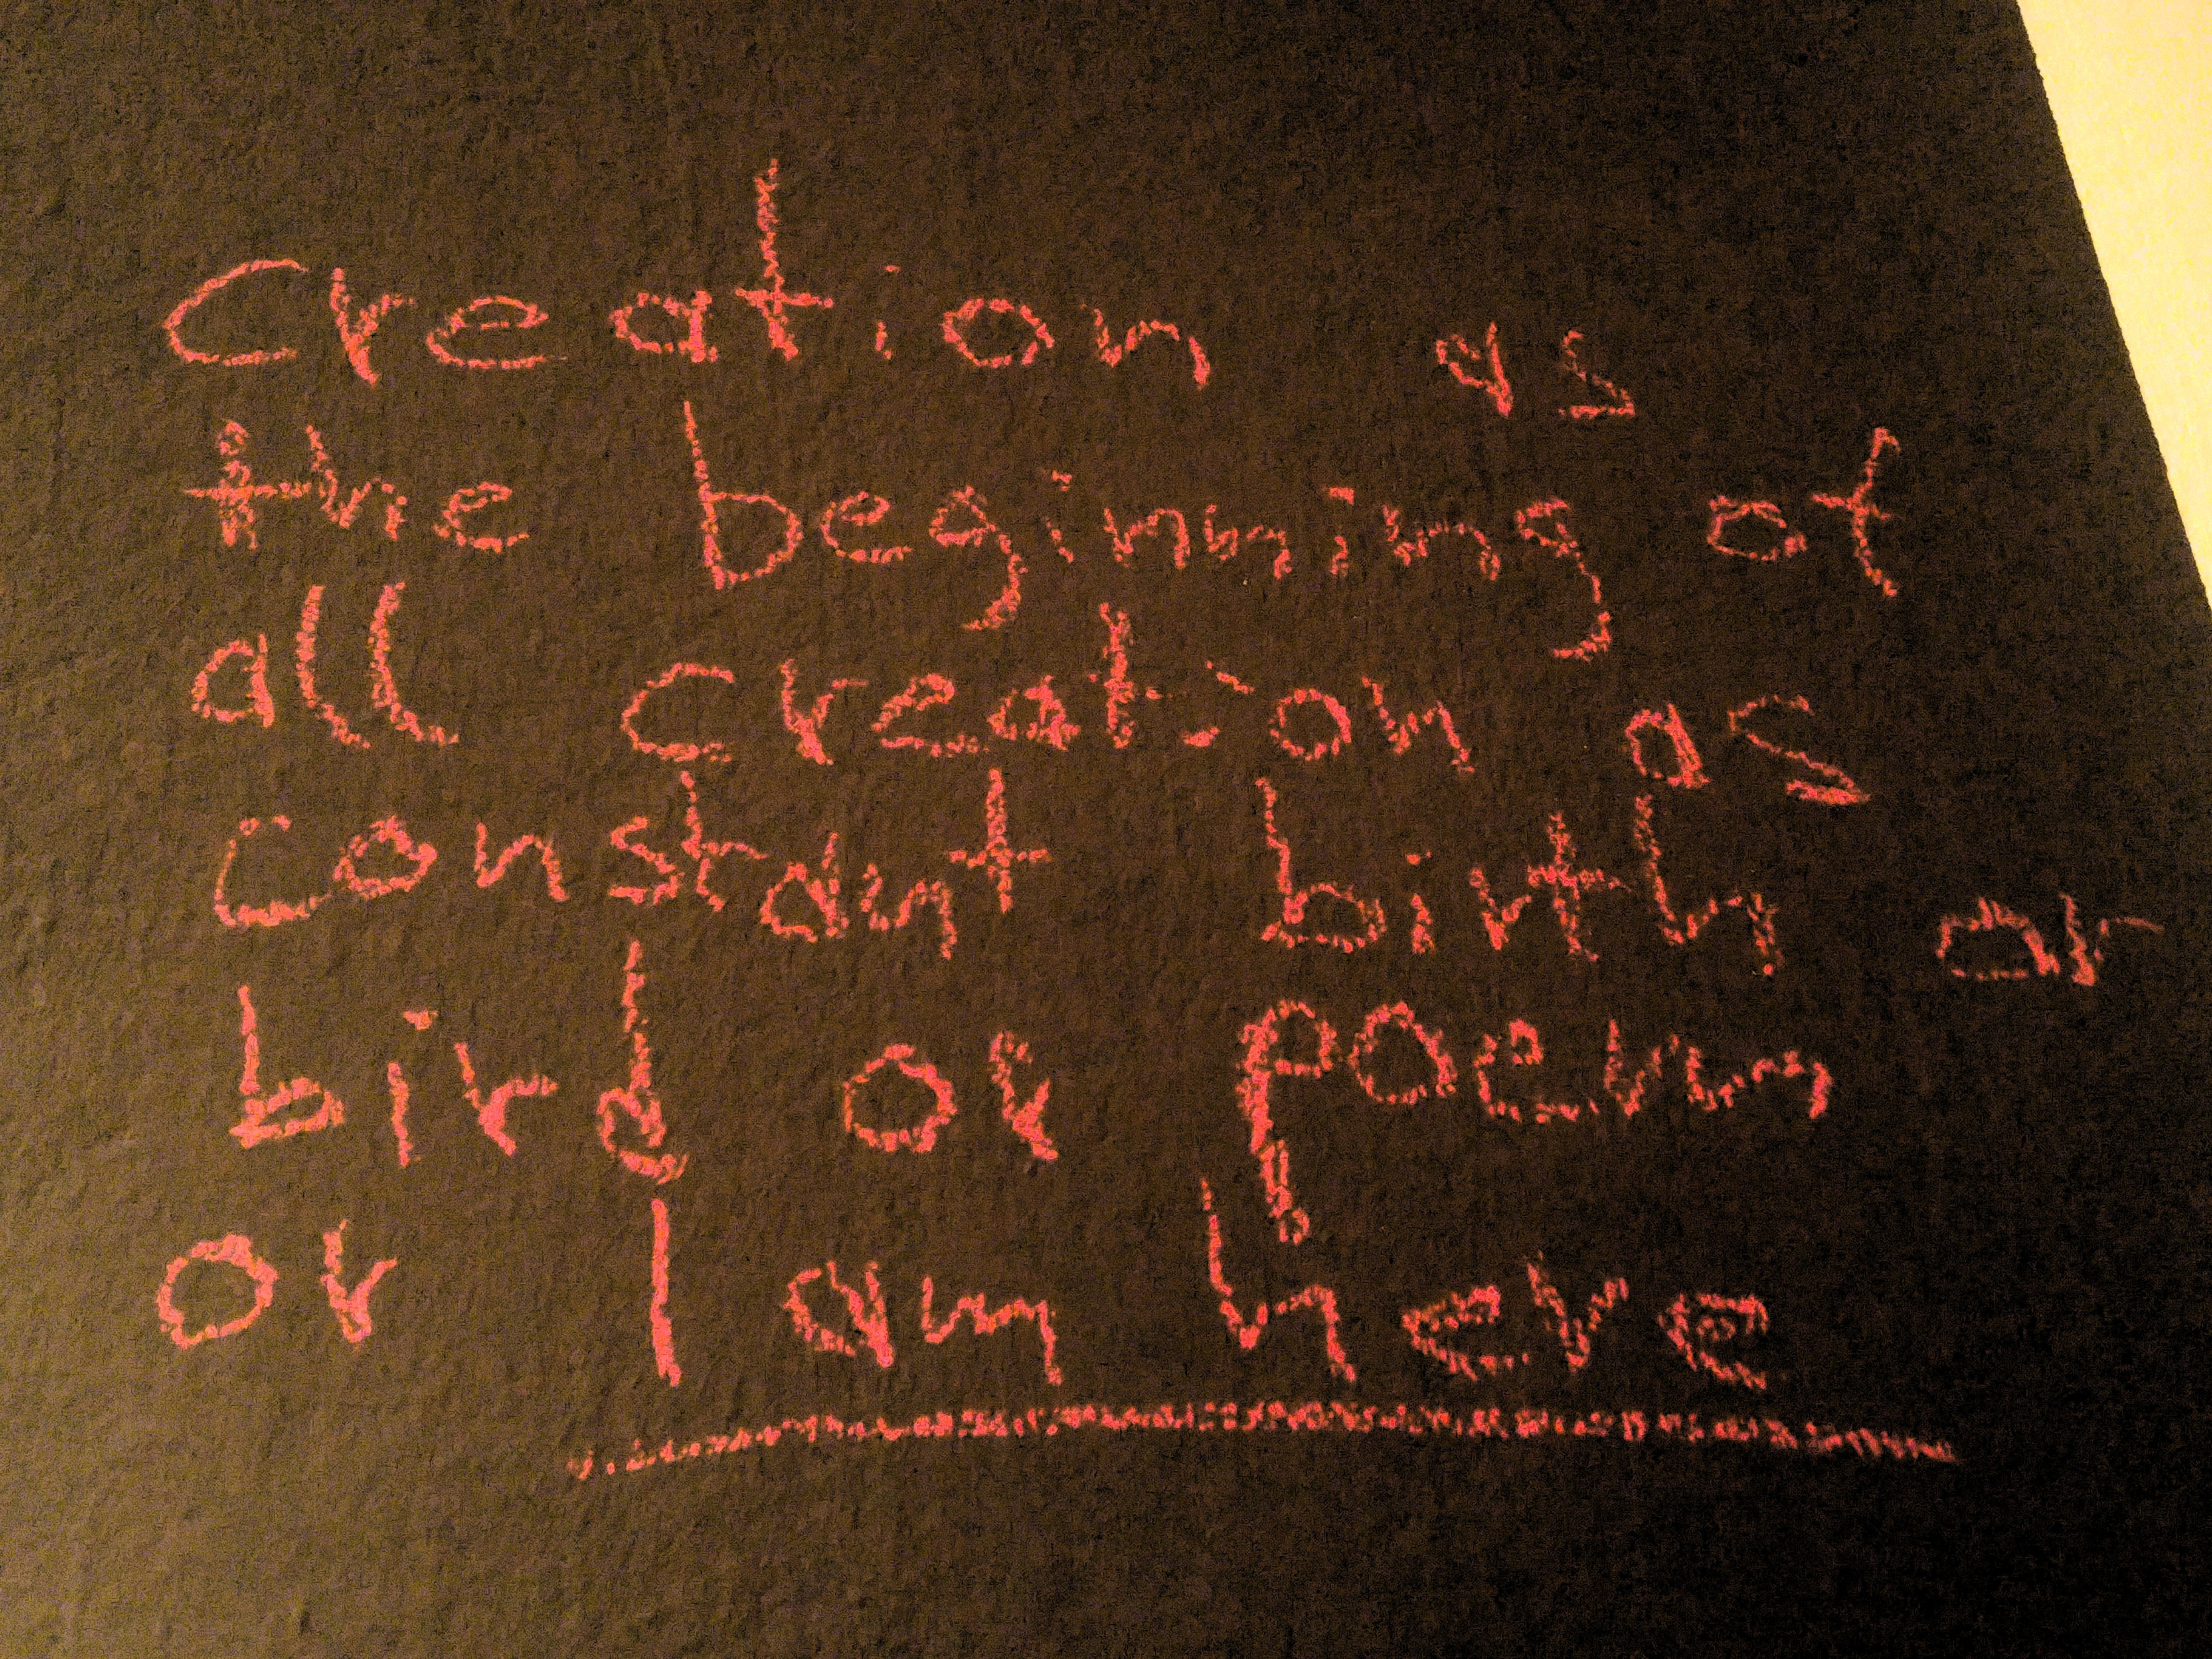 Creation as
the beginning of
all creation as
constant birth or
bird or poem
or I am here